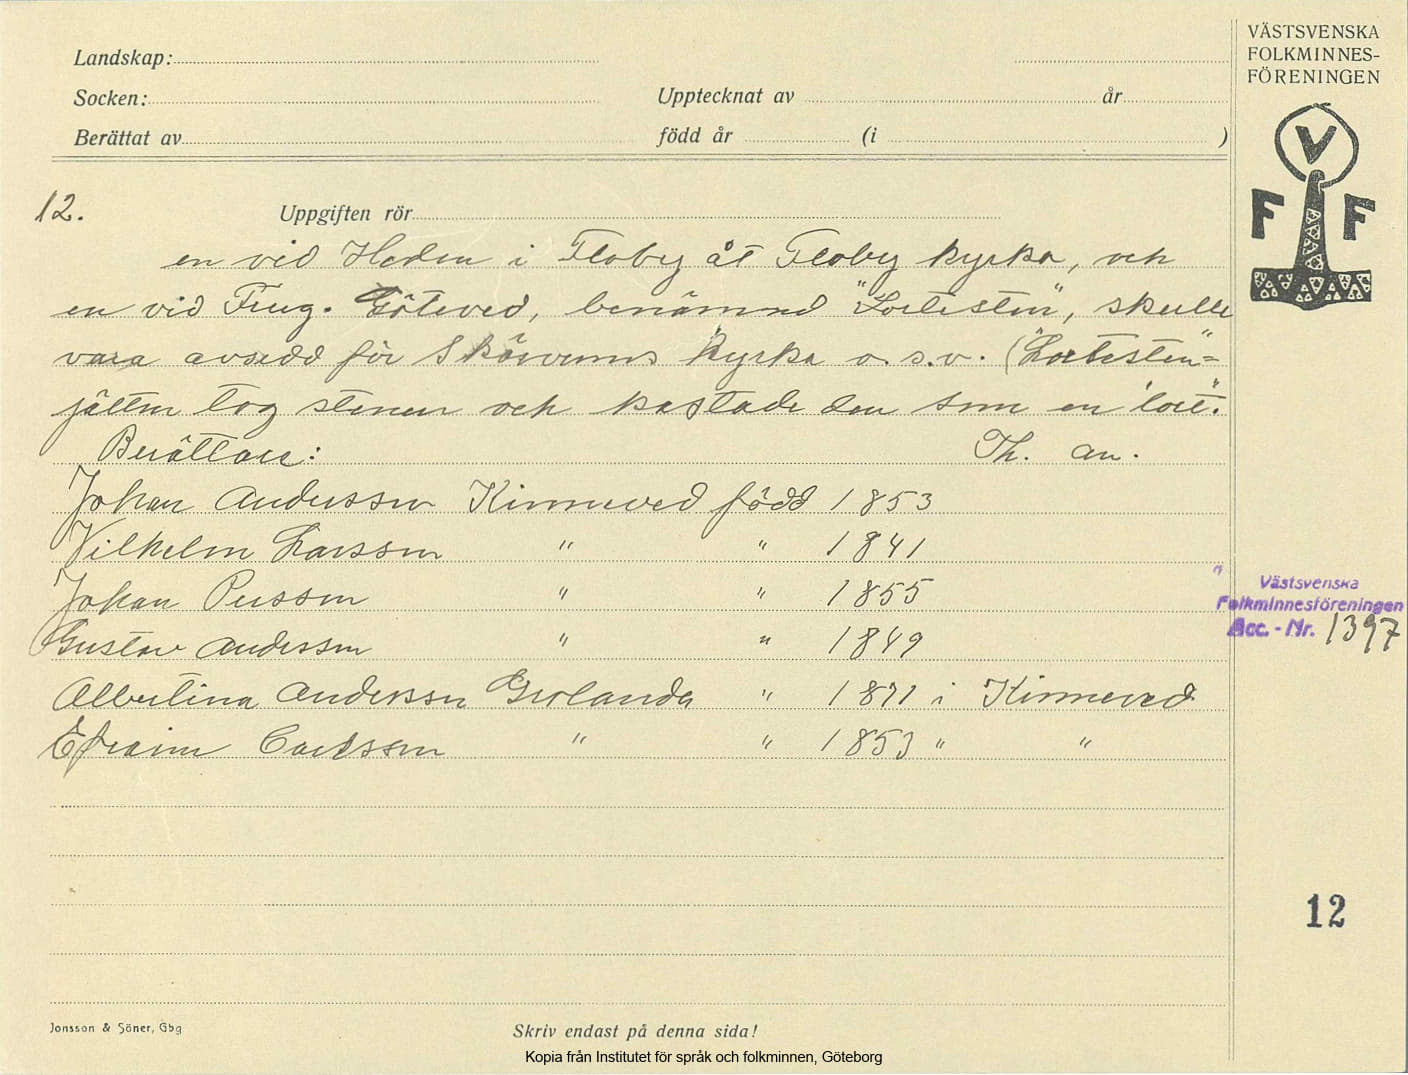 VÄSTSVENSKA
FOLKMINNES-
FÖRENINGEN
V
F F
Landskap:
Socken: Upptecknat av år
Berättat av född år (i )
12. Uppgiften rör
en vid Heden i Floby åt Floby kyrka, och
en vid Göteved, benämnd "Lortesten", skulle
vara avsedd för Skörvums kyrka o.s.v. ("Lortesten"=
jätten tog stenen och kastade den som en "lort".
Berättare: Th. An.
Johan Andersson Kinneved född 1853
Vilhelm Larsson " " 1841
Johan Persson " " 1855
Gustav Andersson " " 1849
Albertina Andersson Grolanda " 1871 i Kinneved
Efraim Carlsson " " 1853 " "
Västsvenska
Folkminnesföreningen
Acc.-Nr. 1397
12
Jonsson & Söner, Gbg
Skriv endast på denna sida!
Kopia från Institutet för språk och folkminnen, Göteborg